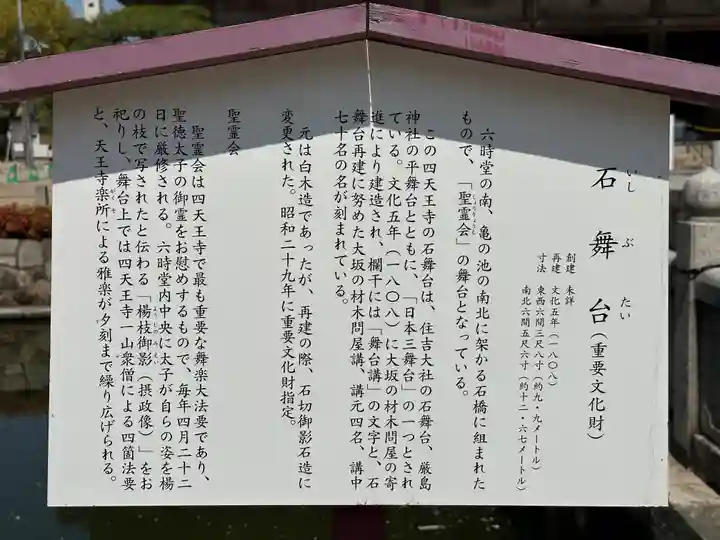 石舞台（重要文化財）
いしぶたい
創建　未詳
再建　文化五年（一八〇八）
寸法　東西六間三尺八寸（約九・九メートル）
南北六間五尺六寸（約十二・六七メートル）
六時堂の南、亀の池の南北に架かる石橋に組まれた
もので、「聖霊会」の舞台となっている。
この四天王寺の石舞台は、住吉大社の石舞台、厳島
神社の平舞台とともに、「日本三舞台」の一つとされ
ている。文化五年（一八〇八）に大坂の材木問屋の寄
進により建造され、欄干には「舞台講」の文字と、石
舞台再建に努めた大坂の材木問屋講、講元四名、講中
七十名の名が刻まれている。
元は白木造であったが、再建の際、石切御影石造に
変更された。昭和二十九年に重要文化財指定。
聖霊会
聖霊会は四天王寺で最も重要な舞楽大法要であり、
聖徳太子の御霊をお慰めするもので、毎年四月二十二
日に厳修される。六時堂内中央に太子が自らの姿を楊
の枝で写されたと伝わる「楊枝御影（摂政像）」をお
祀りし、舞台上では四天王寺一山衆僧による四箇法要
と、天王寺楽所による雅楽が夕刻まで繰り広げられる。